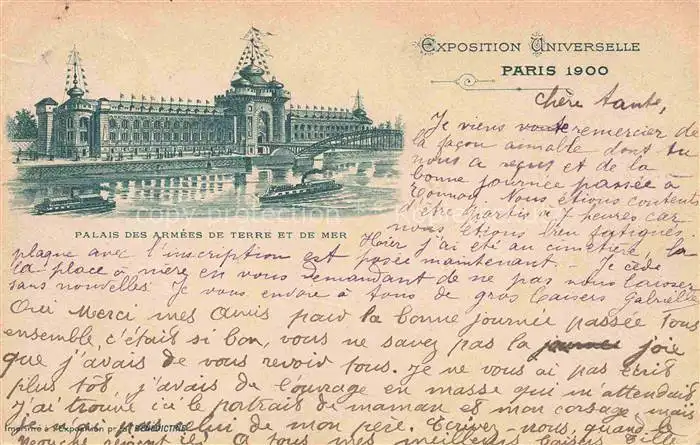 EXPOSITION UNIVERSELLE
PARIS 1900
PALAIS DES ARMÉES DE TERRE ET DE MER
Chère tante,
Je viens remercier de
la façon aimable dont tu
nous a reçus et de la
bonne journée passée à
Nous étions contents
d'être partis à 7 heures car
nous étions bien fatigués.
Hier j'ai été au cimetière, la
plaque avec l'inscription est posée maintenant. Je cède
la place à mère en vous demandant de ne pas nous laisser
sans nouvelles. Je vous envoie à tous de gros baisers Gabrielle
Oui Merci mes amis pour la bonne journée passée tous
ensemble, c'était si bon, vous ne savez pas la joie
que j'avais de vous revoir tous. Je ne vous ai pas écris
plus tôt j'avais de l'ouvrage en masse qui m'attendait
J'ai trouvé ici le portrait de maman et mon corsage mais
lui de mon père. Écrivez nous, quand le
A tous mes baisers
Imprimé à l'Exposition BÉNÉDICTINE